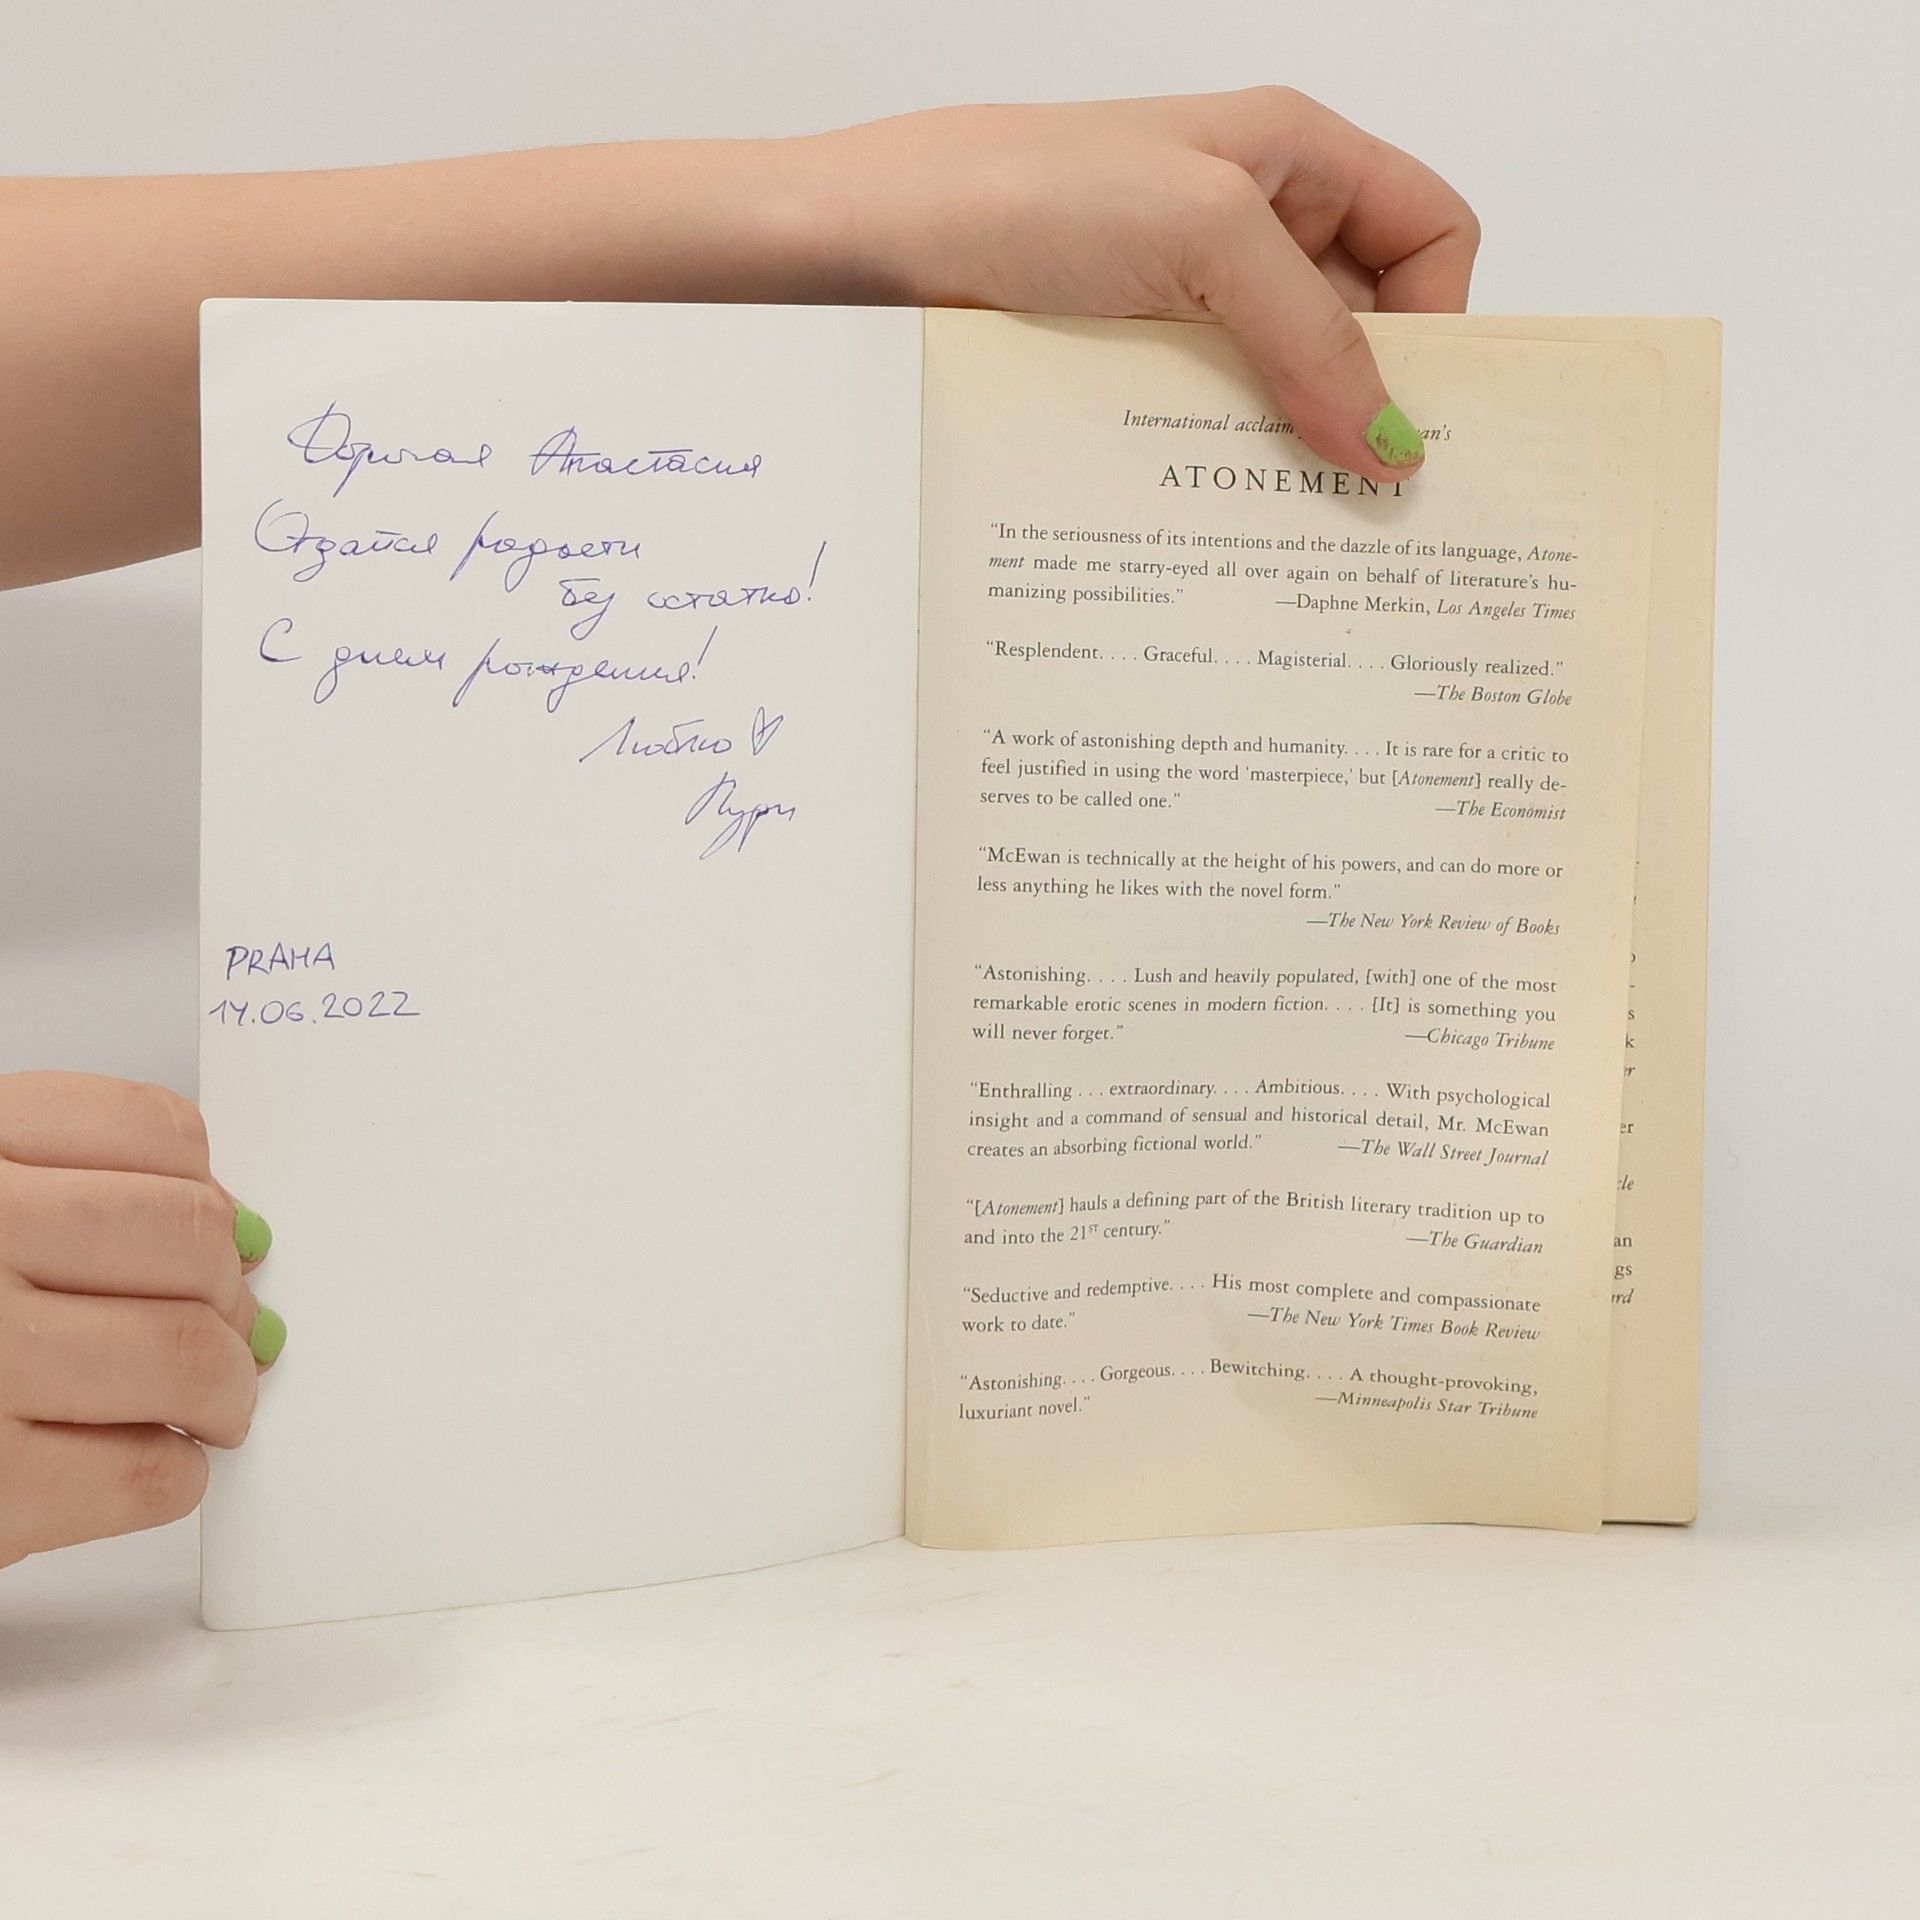 Дорогая Анастасия
Отдайся радости
без остатко!
С днем рождения!
Люблю ♡
PRAHA
14.06.2022
International acclaim an's
ATONEMENT
“In the seriousness of its intentions and the dazzle of its language, Atone-
ment made me starry-eyed all over again on behalf of literature’s hu-
manizing possibilities.” —Daphne Merkin, Los Angeles Times
“Resplendent. . . . Graceful. . . . Magisterial. . . . Gloriously realized.”
—The Boston Globe
“A work of astonishing depth and humanity. . . . It is rare for a critic to
feel justified in using the word ‘masterpiece,’ but [Atonement] really de-
serves to be called one.” —The Economist
“McEwan is technically at the height of his powers, and can do more or
less anything he likes with the novel form.”
—The New York Review of Books
“Astonishing. . . . Lush and heavily populated, [with] one of the most
remarkable erotic scenes in modern fiction. . . . [It] is something you
will never forget.” —Chicago Tribune
“Enthralling . . . extraordinary. . . . Ambitious. . . . With psychological
insight and a command of sensual and historical detail, Mr. McEwan
creates an absorbing fictional world.” —The Wall Street Journal
“[Atonement] hauls a defining part of the British literary tradition up to
and into the 21ST century.” —The Guardian
“Seductive and redemptive. . . . His most complete and compassionate
work to date.” —The New York Times Book Review
“Astonishing. . . . Gorgeous. . . . Bewitching. . . . A thought-provoking,
luxuriant novel.” —Minneapolis Star Tribune